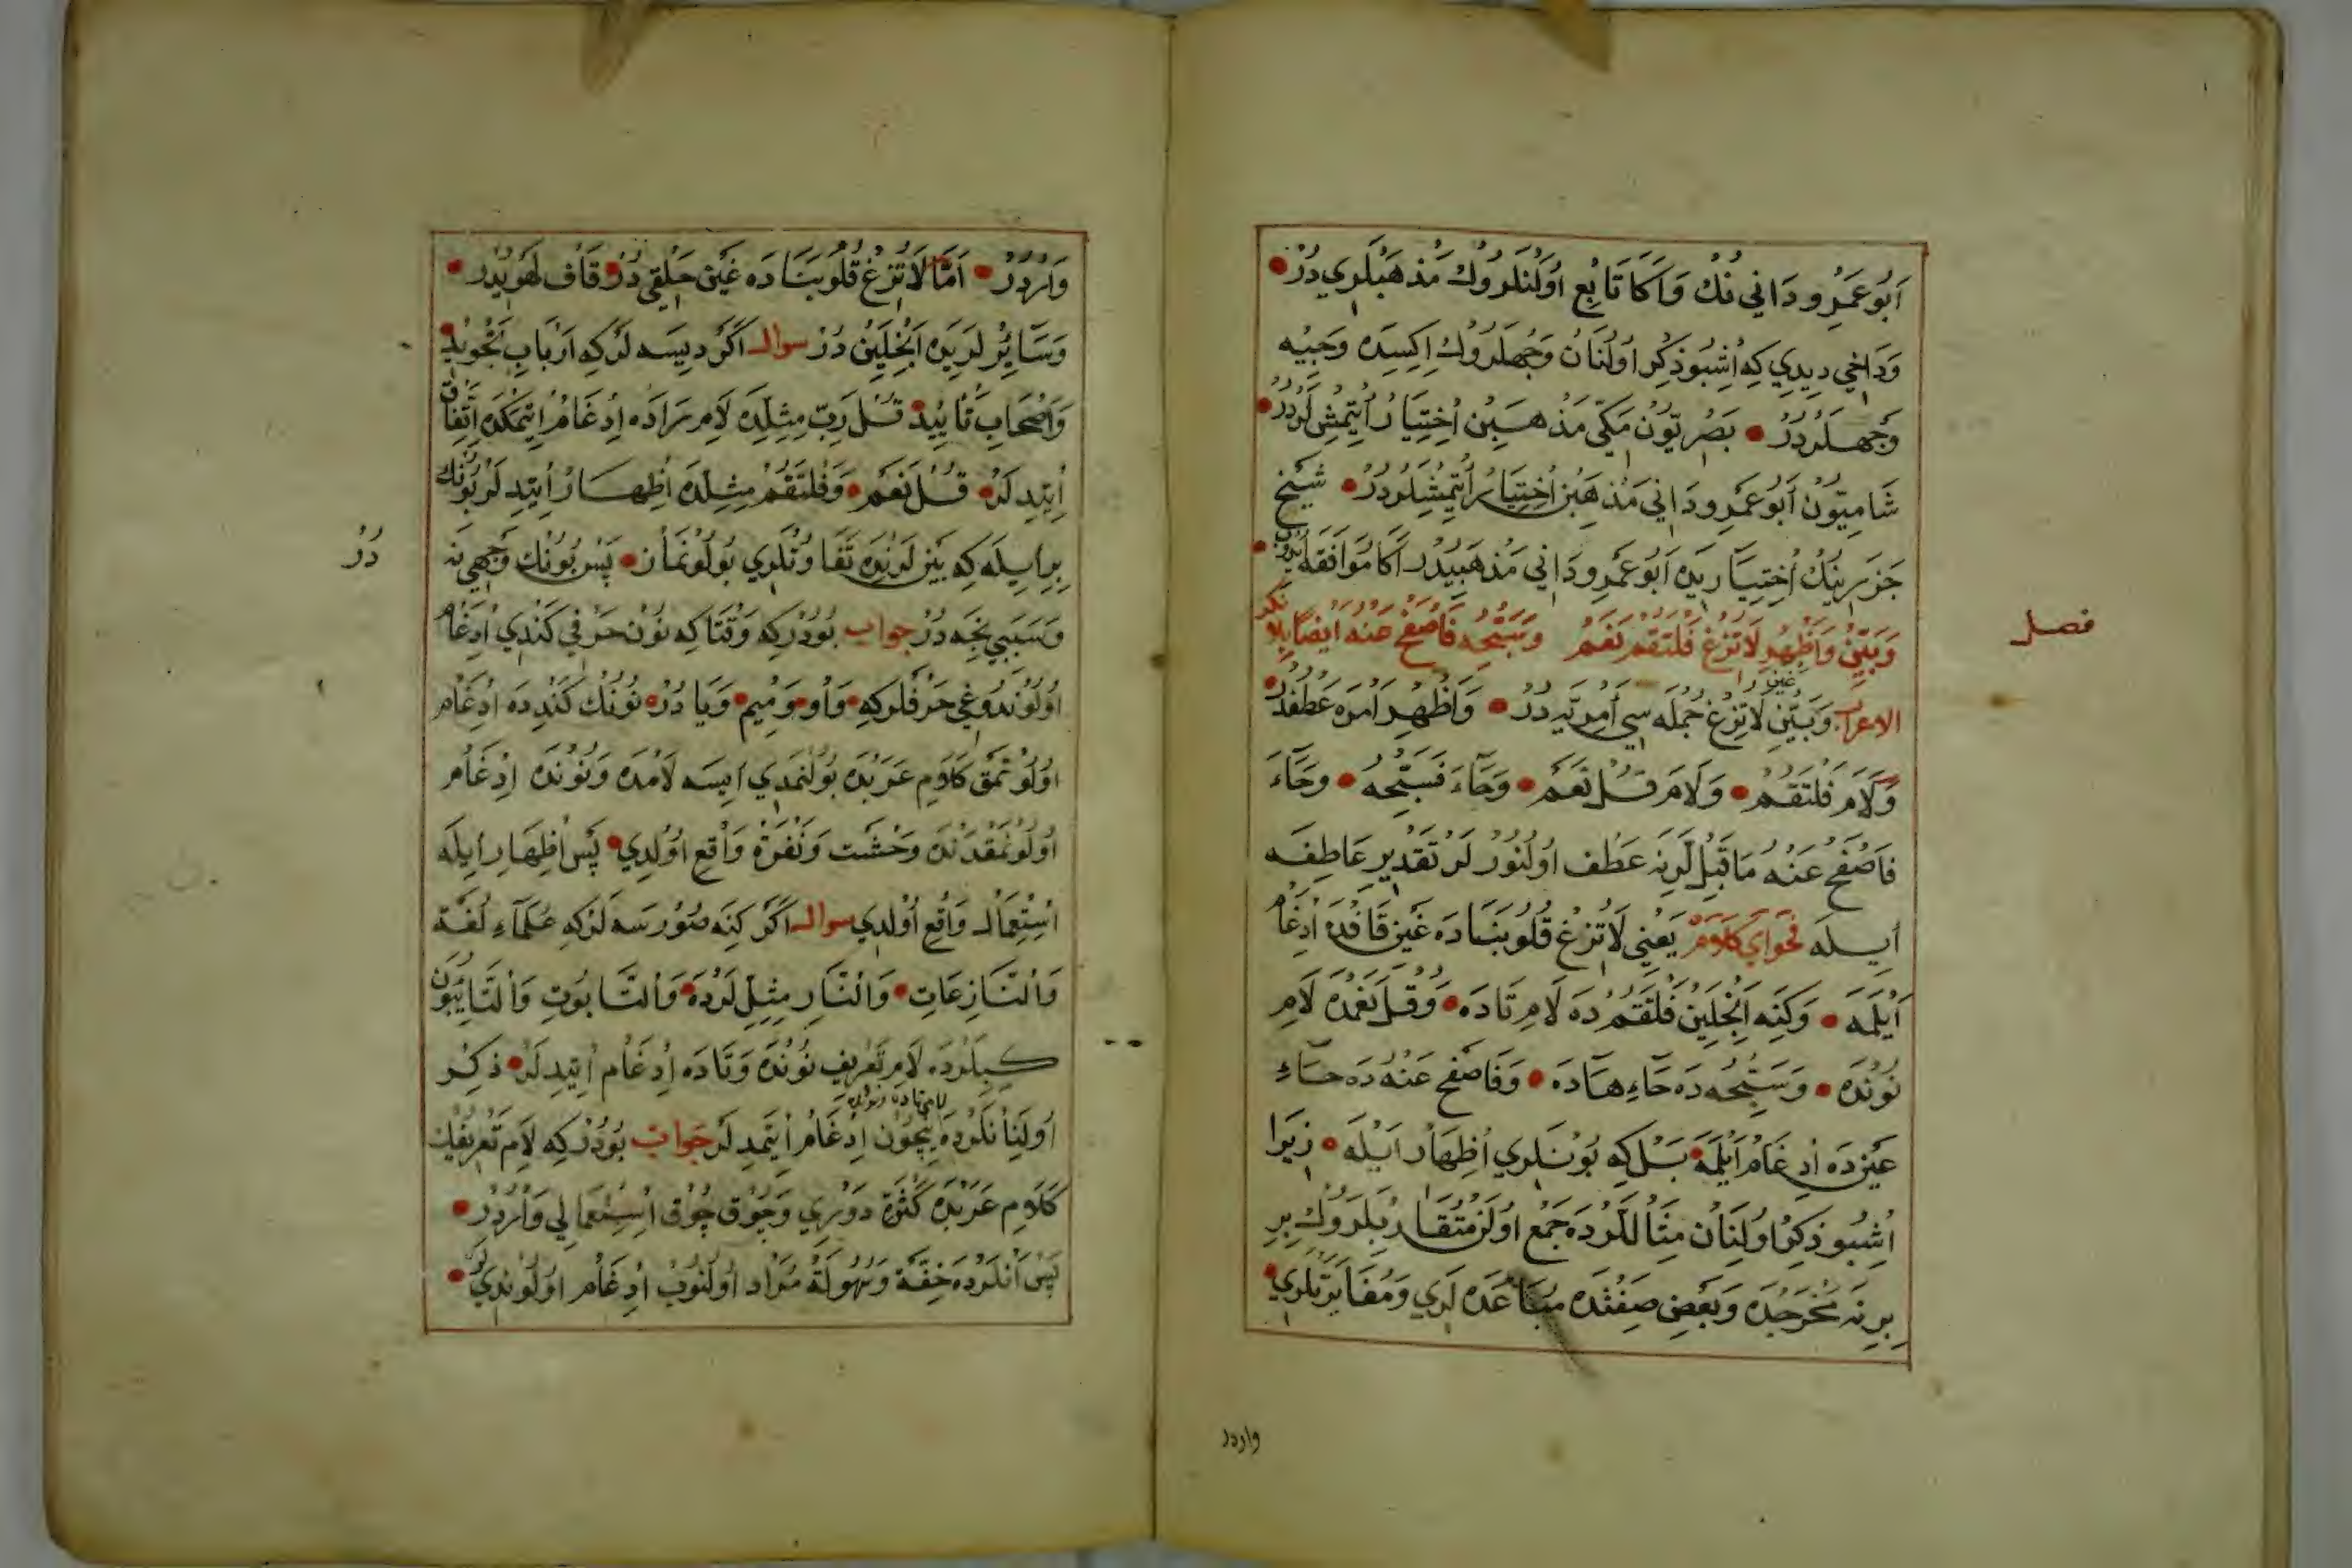 اَبُو عَمْرِو دَانِي نُكْ وَاَكَا تَابِعْ اُولَنْلَرُوكْ مَذْهَبْلَرِي دُرْ
وَدَاخِي دِيدِي كِه اُشْبُو ذِكْر اُولُنَانْ وَجْهلَرُوكْ اِكِسِدَه وَجِيه
وَجْهلَرْدُرْ بَصْرِيُّونْ مَكِّي مَذْهَبِين اِخْتِيَارْ اِتْمِشْلَرْدُرْ
شَامِيُّونْ اَبُو عَمْرِو دَانِي مَذْهَبِن اِخْتِيَارْ اِتْمِشْلَرْدُرْ شَيْخ
جَزَرِينِكْ اِخْتِيَارِيدَه اَبُو عَمْرِو دَانِي مَذْهَبِيدُر اَكَا مُوَافَقَه
فصل
وَبَيِّنْ وَاَظْهِرْ لَا تُزِغْ فَلْتَقُمْ نَعَمْ وَسَبِّحْهُ فَاصْفَحْ عَنْهُ اَيْضًا بِلَا نكر
الاعراب وَبَيِّنِ لَا تُزِغْ جُمْلَه سِي اَمْرِيَّه دُرْ وَاَظْهِرْ اَمْرَه عَطْفدُر
وَلَامَ فَلْتَقُمْ وَلَامَ قُلْ نَعَمْ وَحَاءَ فَسَبِّحْهُ وَحَاءَ
فَاصْفَحْ عَنْهُ مَا قَبْلِ لَرِنَه عَطْف اُولُنُورْ لَرْ تَقْدِيرِ عَاطِفَه
اِيلَه فَحْوَاي كَلَام يَعْنِي لَا تُزِغْ قُلُوبَنَا دَه غَيْن قَافْدَه اِدْغَامْ
اَيْلَمَه وَكِنَه اَنْجِلَيِنْ فَلْتَقُمْ دَه لَامِ تَادَه وَقُلْ نَعَمْدَه لَامِ
نُونْدَه وَسَبِّحْهُ دَه حَاءِ هَادَه وَفَاصْفَحْ عَنْهُ دَه حَاءِ
عَيْنْدَه اِدْغَامْ اَيْلَمَه بَلْكِه بُونْلَرِي اِظْهَارْ اَيْلَه زِيرَا
اُشْبُو ذِكْر اُولُنَانْ مِثَاللَرْدَه جَمْع اُولَنْ مُتَقَارِبْلَرُوكْ بِر
بِرِنَه مَخْرَجْدَه وَبَعْض صِفَتْدَه مُبَاعَدَه لَرِي وَمُغَايَرَتْلَرِي
واردر
وَارْدُرْ اَمَّا لَا تُزِغْ قُلُوبَنَا دَه غَيْن حَلْقِي دُرْ قَاف لَهْوِيدُر
وَسَائِرْ لَرِيدَه اَنْجِلَيِنْ دُرْ سوال اَكَرْ دِيسَه لَرْ كِه اَرْبَابِ تَجْوِيد
وَاَصْحَابِ تَأْيِيدْ قُلْ رَبِّ مِثْلِدَه لَامِ رَادَه اِدْغَامْ اِتْمَكْدَه اِتِّفَاق
اِيتِدِيلَرْ قُلْ نَعَمْ وَفَلْتَقُمْ مِثْلِدَه اِظْهَارْ اِيتِدِيلَرْ بُونُكْ
بِرِيلَه كِه بَيْنلَرِنْدَه تَفَاوُتْلَرِي بُولُونْمَازْ پَسْ بُونُكْ وَجْهِي نَه دُرْ
وَسَبَبِي نِجَه دُرْ جواب بُودُرْ كِه وَقْتَاكِه نُون حَرْفِي كَنْدِي اِدْغَامْ
اُولُونْدُوغِي حَرْفلَر كِه وَاو وَمِيم وَيَا دُرْ نُونُكْ كَنْدِدَه اِدْغَامْ
اُولُونْمَقْ كَلَامِ عَرَبْدَه بُولُنْمَدِي اِيسَه لَامْدَه وَنُونْدَه اِدْغَامْ
اُولُونْمَقْدَنْ وَحْشَت وَنَفْرَة وَاقِع اُولْدِي پَسْ اِظْهَارْ اِيلَه
اِسْتِعْمَال وَاقِع اُولْدِي سوال اَكَرْ كِنَه صُورْسَه لَرْ كِه عُلَمَاءِ لُغَة
وَالنَّازِعَاتِ وَالنَّارِ مِثِلّلَرْدَه وَالتَّابُوتِ وَالتَّائِبُونَ
كِبِلَرْدَه لَامِ تَعْرِيفِ نُونْدَه وَتَادَه اِدْغَامْ اِيتِدِيلَرْ ذِكْر
اُولُنَانْلَرْدَه نِيچُونْ اِدْغَامْ اِيتْمَدِيلَرْ جَوَاب بُودُرْ كِه لَامِ تَعْرِيفُكْ
كَلَامِ عَرَبْدَه كَثْرَة دَوْرِي وَچُوق چُوق اِسْتِعْمَالِي وَارْدُرْ
پَسْ اَنْلَرْدَه خِفَّة وَسُهُولَة مُرَاد اُولُنُوبْ اِدْغَامْ اُولُونْدِي